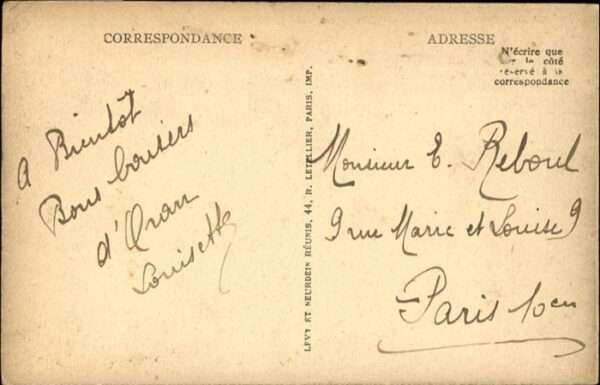 CORRESPONDANCE
A Bientôt
Bons baisers
d'Oran
Louisette
LEVY ET NEURDEIN RÉUNIS, 44, R. LETELLIER, PARIS, IMP.
ADRESSE
N'écrire que
le côté
réservé à la
correspondance
Monsieur E. Reboul
9 rue Marie et Louise 9
Paris 10em